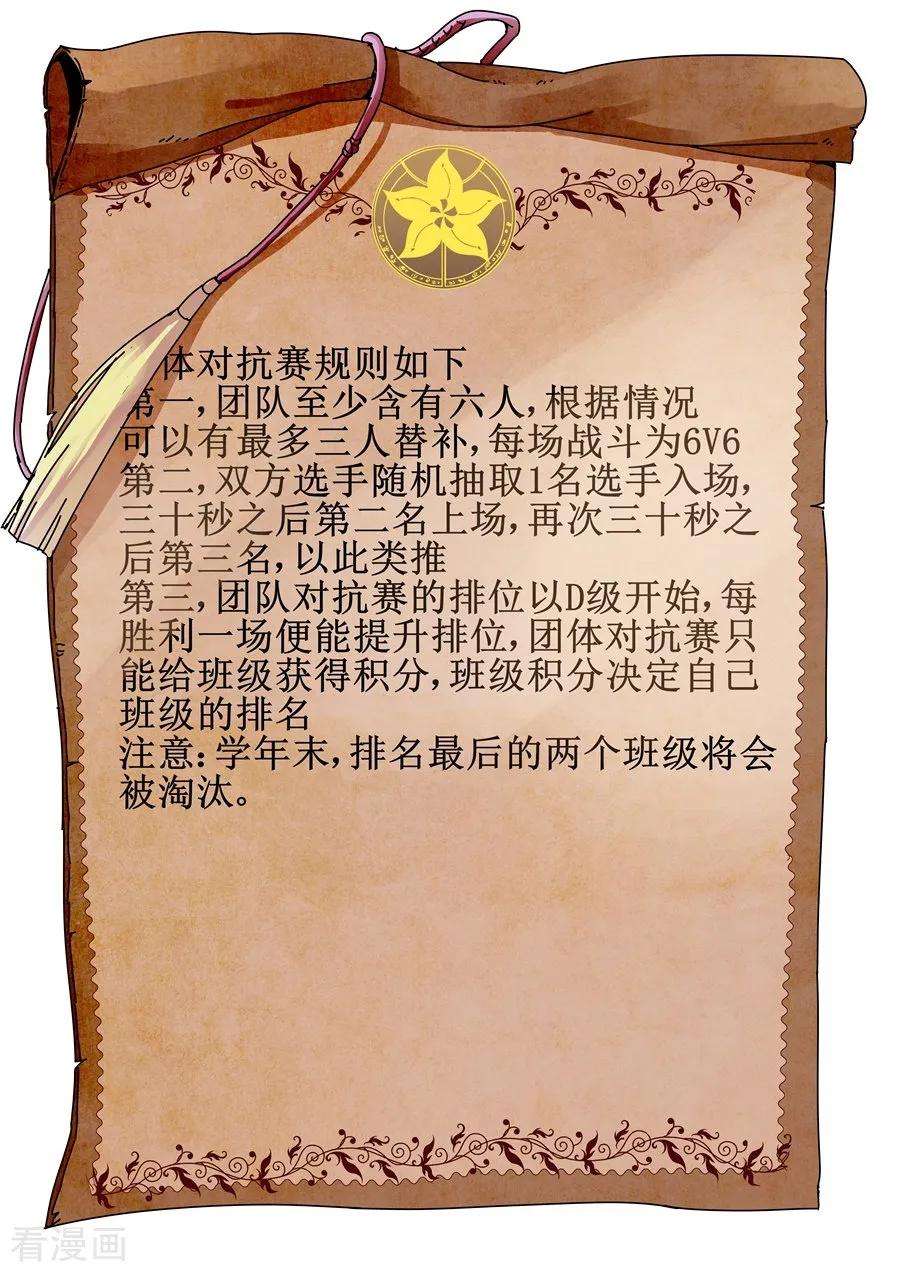 体对抗赛规则如下
第一,团队至少含有六人,根据情况
可以有最多三人替补,每场战斗为6V6
第二,双方选手随机抽取1名选手入场,
三十秒之后第二名上场,再次三十秒之
后第三名,以此类推
第三,团队对抗赛的排位以D级开始,每
胜利一场便能提升排位,团体对抗赛只
能给班级获得积分,班级积分决定自己
班级的排名
注意:学年末,排名最后的两个班级将会
被淘汰。
看漫画